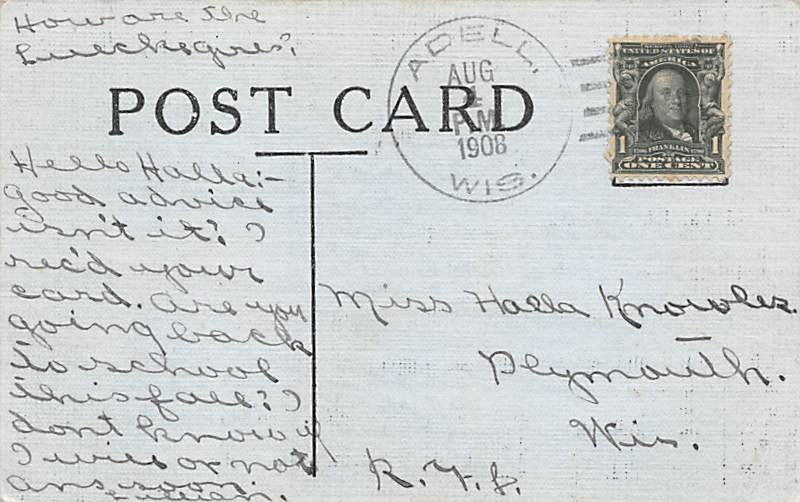 How are the
POST CARD
ADELL,
AUG
P.M.
1908
WIS.
SERIES 1902
UNITED STATES OF
AMERICA
1 FRANKLIN 1
POSTAGE
ONE CENT
Hello Halla:-
good advice
isn't it? I
rec'd your
card. Are you
going back
to school
this fall? I
dont know if
I will or not
ans soon.
Lillian.
Miss Halla Knowles.
Plymouth.
Wis.